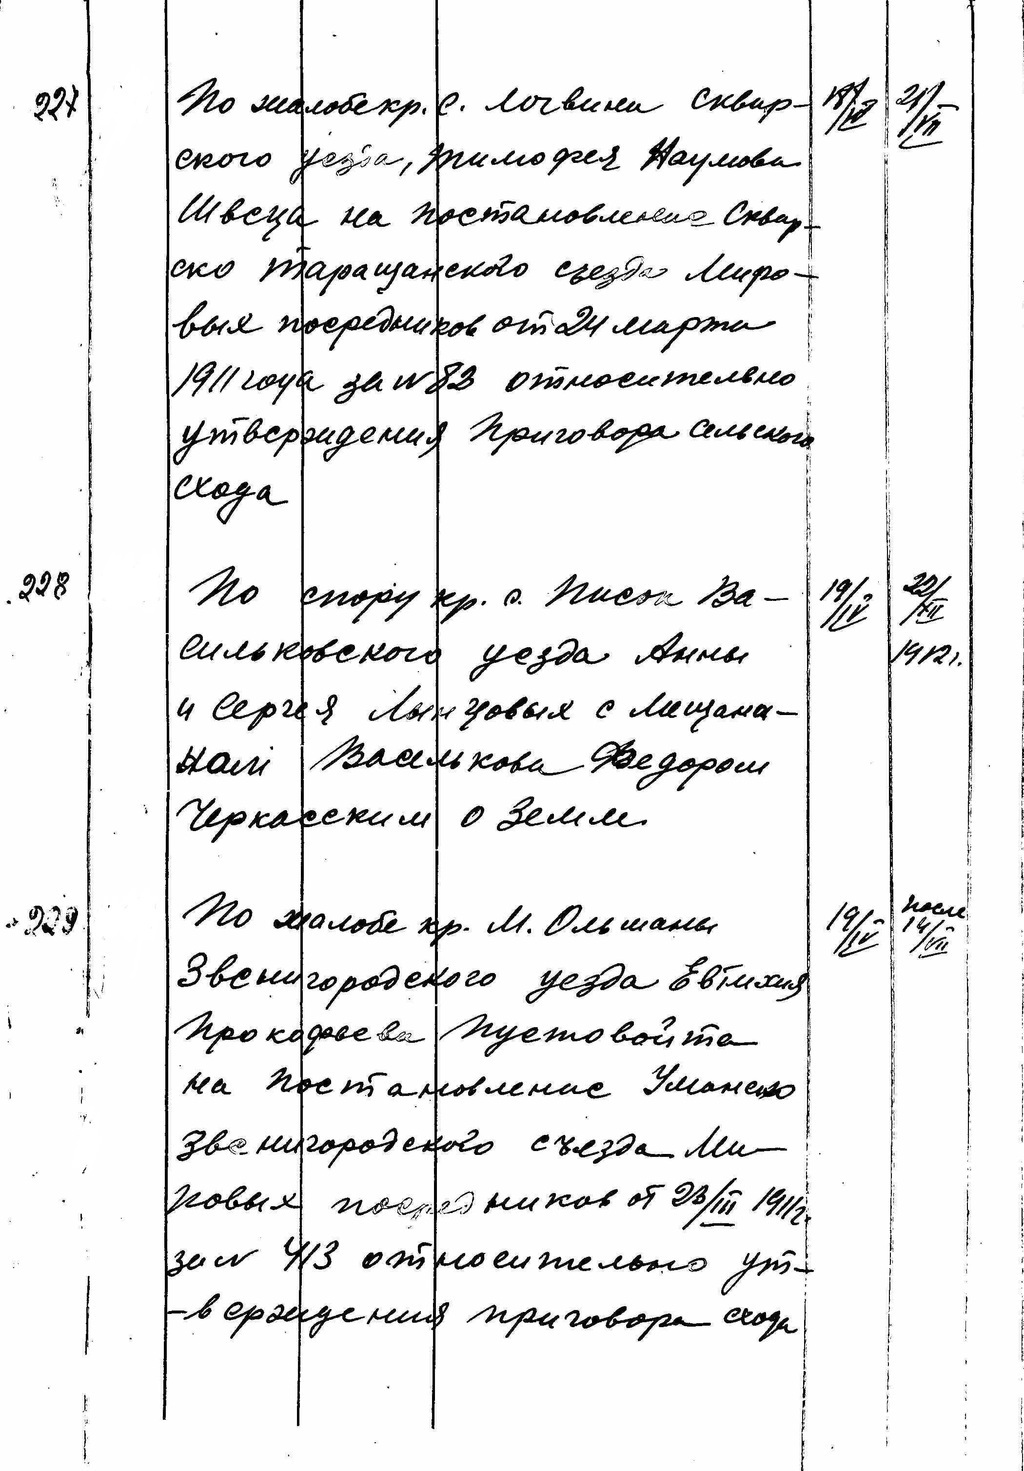 227 По жалобе кр. с. Логвина Сквир- 18/IV 21/VII
ского уезда, Тимофея Наумова
Швеца на постановление Сквир-
ско Таращанского съезда Миро-
вых посредников от 24 марта
1911 года за N 83 относительно
утверждения приговора сельского
схода
228 По спору кр. с. Писок Ва- 19/IV 22/XII
сильковского уезда Анны 1912 г.
и Сергея с мещана-
нам Василькова Федором
Черкасским о земле.
229 По жалобе кр. М. Ольшаны 19/IV после 14/VII
Звенигородского уезда Евтихия
Прокофьева Пустовойта
на постановление Уманско
Звенигородского съезда Ми-
ровых посредников от 23/III 1911 г.
за N 413 относительно ут-
-верждения приговора схода